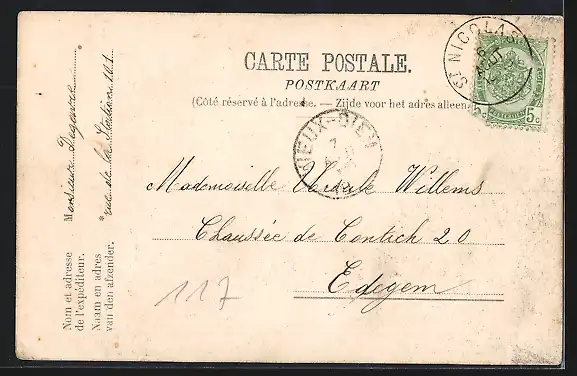 CARTE POSTALE.
POSTKAART
(Côté réservé à l'adresse. — Zijde voor het adres alleen.)
ST NICOLAS
6
AOUT
5c
VIEUX-DIEU
7
Mademoiselle Willems
Chaussée de Contich 20
Edegem
117
Nom et adresse Monsieur
de l'expéditeur.
Naam en adres rue de la Station 101
van den afzender.